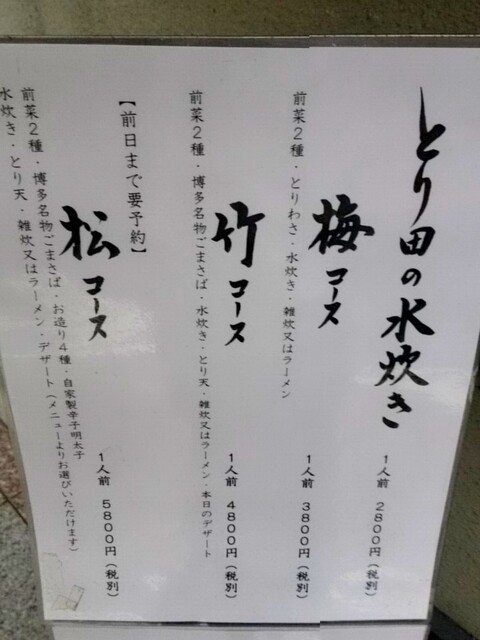 とり田の水炊き
1人前 2800円(税別)
梅コース
1人前 3800円(税別)
前菜2種・とりわさ・水炊き・雑炊又はラーメン
竹コース
1人前 4800円(税別)
前菜2種・博多名物ごまさば・水炊き・とり天・雑炊又はラーメン・本日のデザート
【前日まで要予約】
松コース
1人前 5800円(税別)
前菜2種・博多名物ごまさば・お造り4種・自家製辛子明太子
水炊き・とり天・雑炊又はラーメン・デザート(メニューよりお選びいただけます)